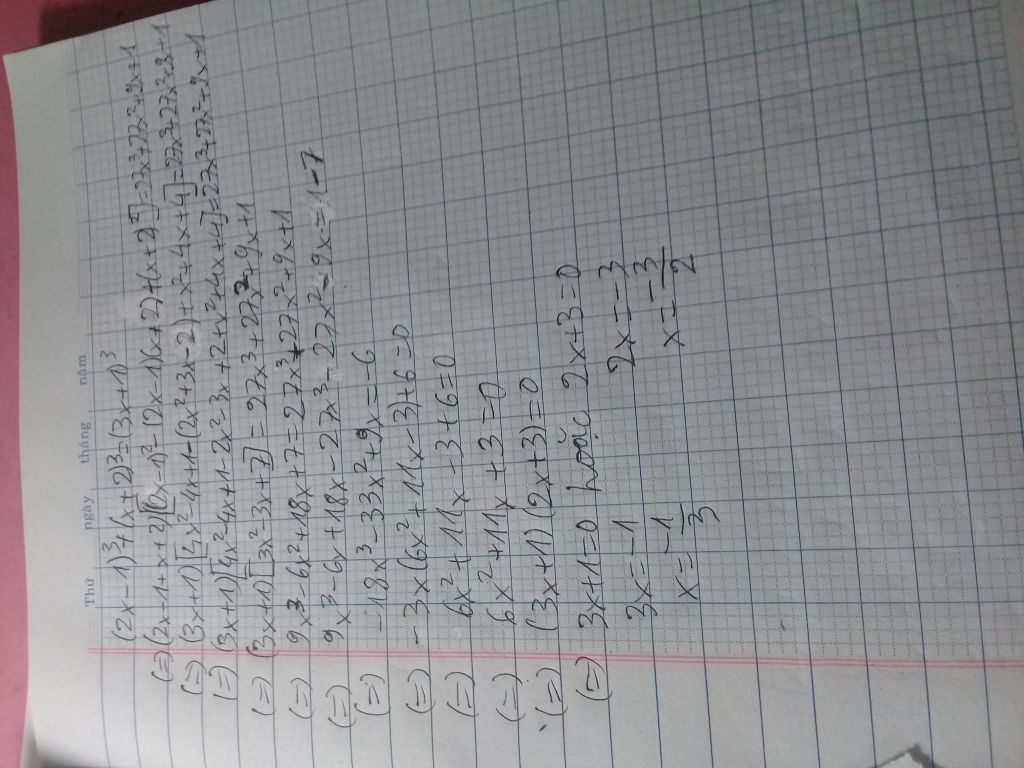 Thứ ngày tháng năm
(2x-1)³+(x+2)³=(3x+1)³
(=) (2x-1+x+2)[(2x-1)²-(2x-1)(x+2)+(x+2)²]=27x³+27x²+9x+1
(=) (3x+1)[4x²-4x+1-(2x²+3x-2)+x²+4x+4]=27x³+27x²+9x+1
(=) (3x+1)[4x²-4x+1-2x²-3x+2+x²+4x+4]=27x³+27x²+9x+1
(=) (3x+1)[3x²-3x+7]=27x³+27x²+9x+1
(=) 9x³-6x²+18x+7=27x³+27x²+9x+1
(=) 9x³-6x+18x-27x³-27x²-9x=1-7
(=) -18x³-33x²+9x=-6
(=) -3x(6x²+11x-3)+6=0
(=) 6x²+11x-3+6=0
(=) 6x²+11x+3=0
(=) (3x+1)(2x+3)=0
(=) 3x+1=0 hoặc 2x+3=0
3x=-1 2x=-3
x=-1/3 x=-3/2